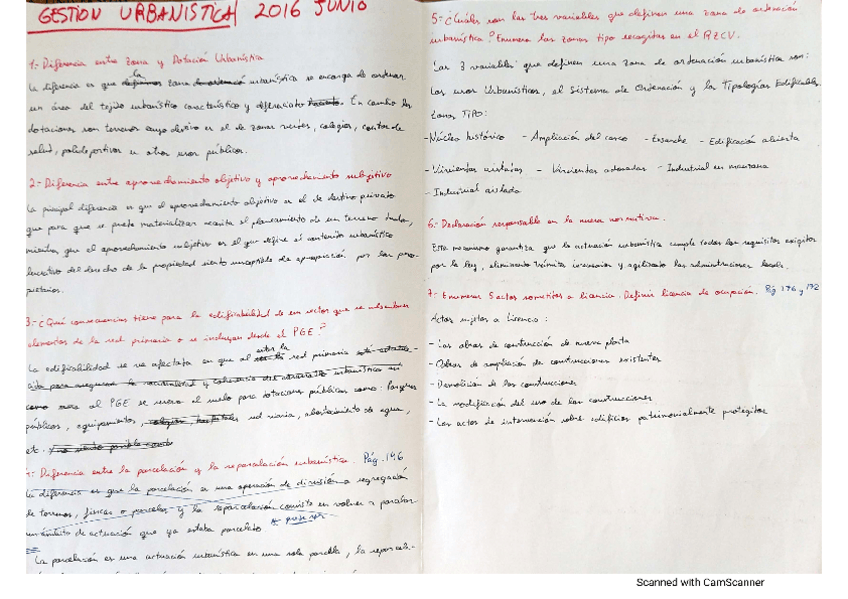 GESTIÓN URBANÍSTICA 2016 JUNIO
1.- Diferencia entre zona y Dotación Urbanística
La diferencia es que la zona urbanística se encarga de ordenar
un área del tejido urbanístico característico y diferenciado. En cambio las
dotaciones son terrenos cuyo destino es el de zonas verdes, colegios, centros de
salud, polideportivos u otros usos públicos.
2.- Diferencia entre aprovechamiento objetivo y aprovechamiento subjetivo
La principal diferencia es que el aprovechamiento objetivo es el de destino privado
que para que se pueda materializar necesita el planeamiento de un terreno
mientras que el aprovechamiento subjetivo es el que define el contenido urbanístico
lucrativo del derecho de la propiedad siendo susceptible de apropiación por los pro-
pietarios.
3.- ¿Qué consecuencias tiene para la edificabilidad de un sector que se
elementos de la red primaria o se incluyan desde el PGE?
La edificabilidad se ve afectada en que al estar la red primaria
al PGE se suelo para dotaciones públicas como: Parques
públicos, equipamientos, red viaria, abastecimiento de agua,
etc.
4.- Diferencia entre la parcelación y la reparcelación urbanística. Pág. 146
La diferencia es que la parcelación es una operación de división o segregación
de terrenos, fincas o parcelas y la reparcelación consiste en volver a parcelar
un ámbito de actuación que ya estaba parcelado
La parcelación es una actuación urbanística en una sola parcela, la reparcela-
5.- ¿Cuáles son las tres variables que definen una zona de ordenación
urbanística? Enumera las zonas tipo recogidas en el RZCV.
Las 3 variables que definen una zona de ordenación urbanística son:
Los usos Urbanísticos, el Sistema de Ordenación y la Tipologías Edificables.
Zonas TIPO:
- Núcleo histórico - Ampliación del casco - Ensanche - Edificación abierta
- Viviendas aisladas - Viviendas adosadas - Industrial en manzana
- Industrial aislada
6.- Declaración responsable en la nueva normativa.
Este mecanismo garantiza que la actuación urbanística cumple todos los requisitos exigidos
por la ley, eliminando trámites innecesarios y agilizando las administraciones locales.
7.- Enumerar 5 actos sometidos a licencia. Definir licencia de ocupación. Pág 176 y 172
Actos sujetos a Licencia:
- Las obras de construcción de nueva planta
- Obras de ampliación de construcciones existentes
- Demolición de las construcciones
- La modificación del uso de las construcciones
- Los actos de intervención sobre edificios patrimonialmente protegidos
Scanned with CamScanner